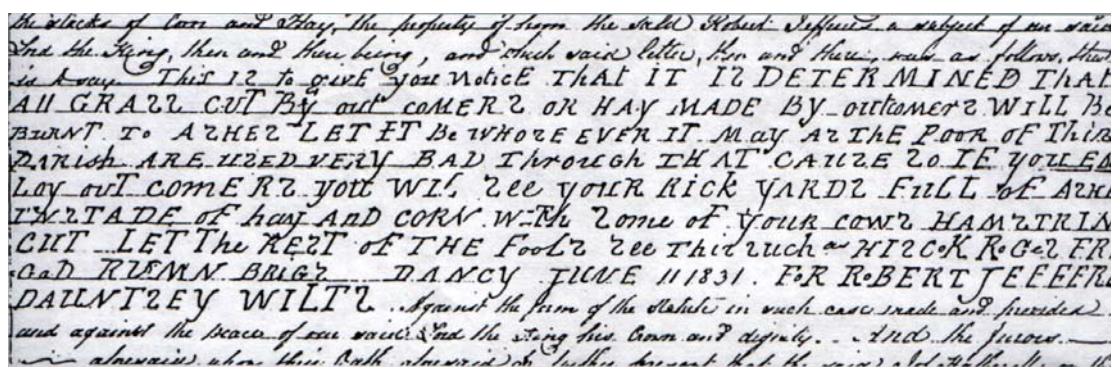 the stacks of Corn and Hay, the property of from the said Robert Jefferies a subject of our said
Lord the King, then and there being, and which said letter, then and there, was as follows, that
is to say This is to give you Notice THAT IT IS DETERMINED THAT
All GRASS CUT By out COMERS OR HAY MADE BY outcomers WILL BE
BURNT To ASHES LET IT Be WHOSE EVER IT May AS THE Poor of This
PARish ARE USED VERY BAD Through THAT CAUSE SO IF you EM
Loy out COMERS you WIL see youR Rick YARDS FULL of ASH
INSTADE of hay AND CORN With Some of your cows HAMSTRIN
CUT LET The REST of THE FoolS See This such as HISCoK RoGeS FER
BRIGS DANCY JUNE 11 1831. FoR RoBERT JEFFERE
DAUNTSEY WILTS Against the form of the statute in such case made and provided
and against the peace of our said Lord the King his Crown and dignity. And the Jurors
aforesaid upon their Oath aforesaid do further present that the said